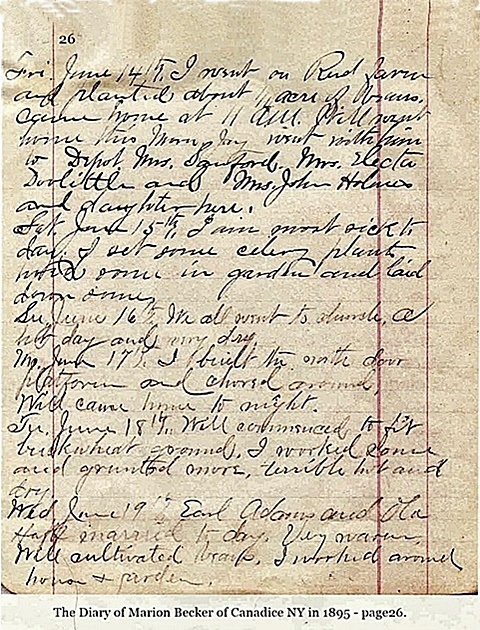 26
Fri. June 14th, I went on Reed farm
and planted about ½ acre of Beans.
came home at 11 A.M. Will went
home this Morn, Joy went with him
to Depot Mrs. Sanford, Mrs. Electa
Doolittle and Mrs. John Holmes
and daughter here.
Sat, June 15th, I am most sick to
day, I set some celery plants
some in garden and laid
down some,
Su, June 16th, We all went to church, a
hot day and very dry.
Mo, June 17th, I built the north door
platform and chored around,
Will came home to night.
Tu, June 18th, Will commenced to fit
buckwheat ground, I worked some
and grunted more, terrible hot and
dry.
Wed June 19th Earl Adams and Ola
married to day. Very warm,
Will cultivated Beans, I worked around
house + garden.
The Diary of Marion Becker of Canadice NY in 1895 - page26.